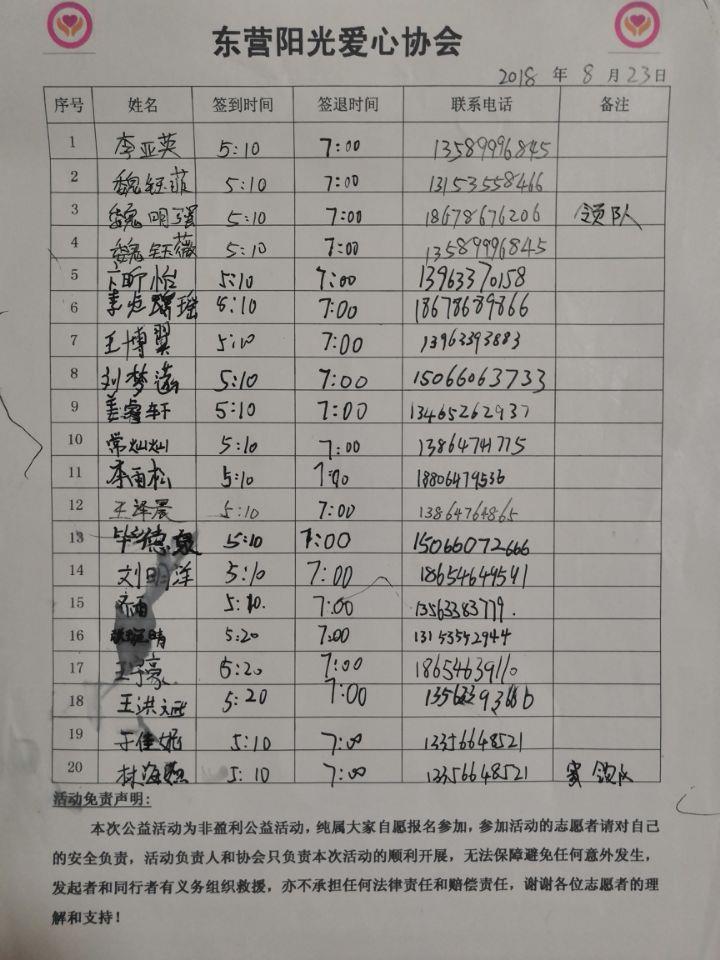 东营阳光爱心协会
2018 年 8 月 23 日
序号 姓名 签到时间 签退时间 联系电话 备注
1 李亚英 5:10 7:00 13589996845
2 魏钰菲 5:10 7:00 13153558466
3 魏明强 5:10 7:00 18678676206 领队
4 魏钰薇 5:10 7:00 13589996845
5 昕怡 5:10 7:00 13963370158
6 5:10 7:00 18678689866
7 王博翼 5:10 7:00 13963393883
8 刘梦 5:10 7:00 15066063733
9 姜睿轩 5:10 7:00 13465262937
10 常灿灿 5:10 7:00 13864741775
11 李雨松 5:10 7:00 18806479536
12 王泽晨 5:10 7:00 13864764865
13 毕德 5:10 7:00 15066072666
14 刘明洋 5:10 7:00 18654644541
15 齐雨 5:10. 7:00 13563383779.
16 晴 5:20 7:00 13153552944
17 王宇豪 5:20 7:00 18654639110
18 王洪 5:20 7:00
19 于佳妮 5:10 7:00 13356648521
20 林海燕 5:10 7:00 13356648521 领队
活动免责声明:
本次公益活动为非盈利公益活动，纯属大家自愿报名参加，参加活动的志愿者请对自己
的安全负责，活动负责人和协会只负责本次活动的顺利开展，无法保障避免任何意外发生，
发起者和同行者有义务组织救援，亦不承担任何法律责任和赔偿责任，谢谢各位志愿者的理
解和支持！